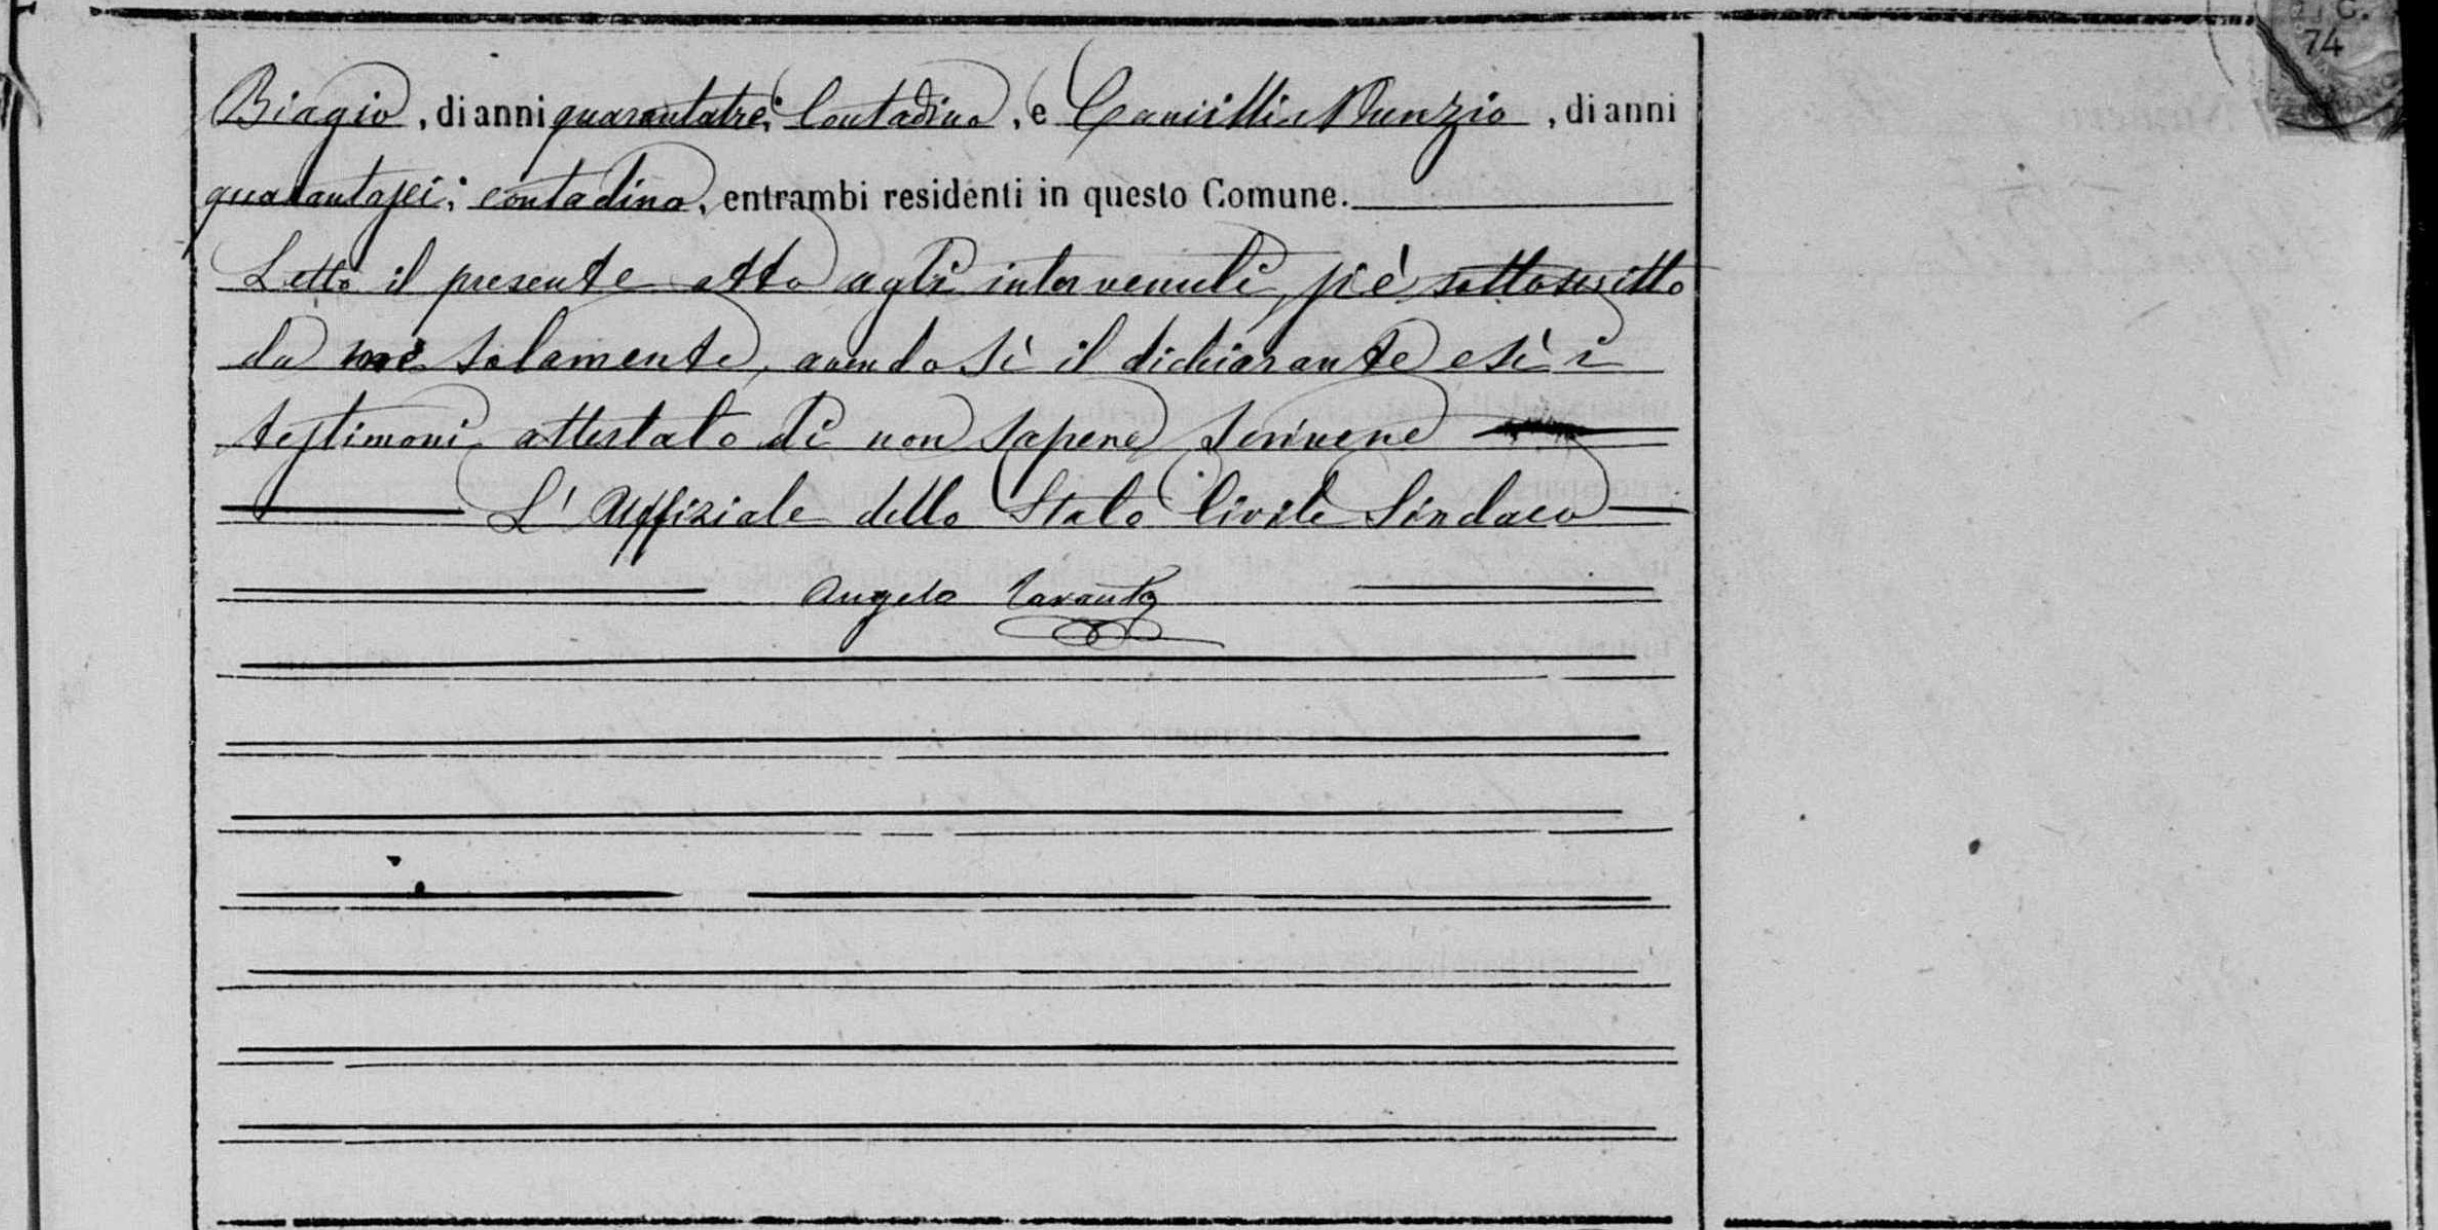 Biagio, di anni quarantatre; Contadino, e Camilli Nunzio, di anni
quarantasei; contadino, entrambi residenti in questo Comune.
Letto il presente atto agli intervenuti, si è sottoscritto
da me solamente, avendo sì il dichiarante e sì i
testimoni attestato di non sapere scrivere
L'Uffiziale dello Stato Civile Sindaco
Angelo Taranto
C.
74